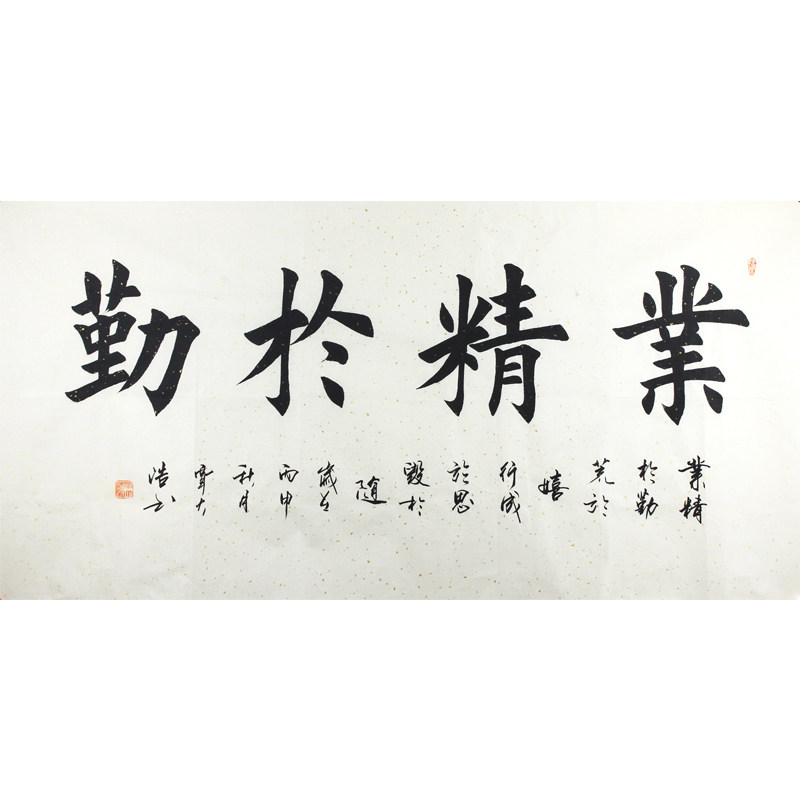 業精於勤
業精
於勤
荒於
嬉
行成
於思
毀於
隨
歲在
丙申
秋月
浩書